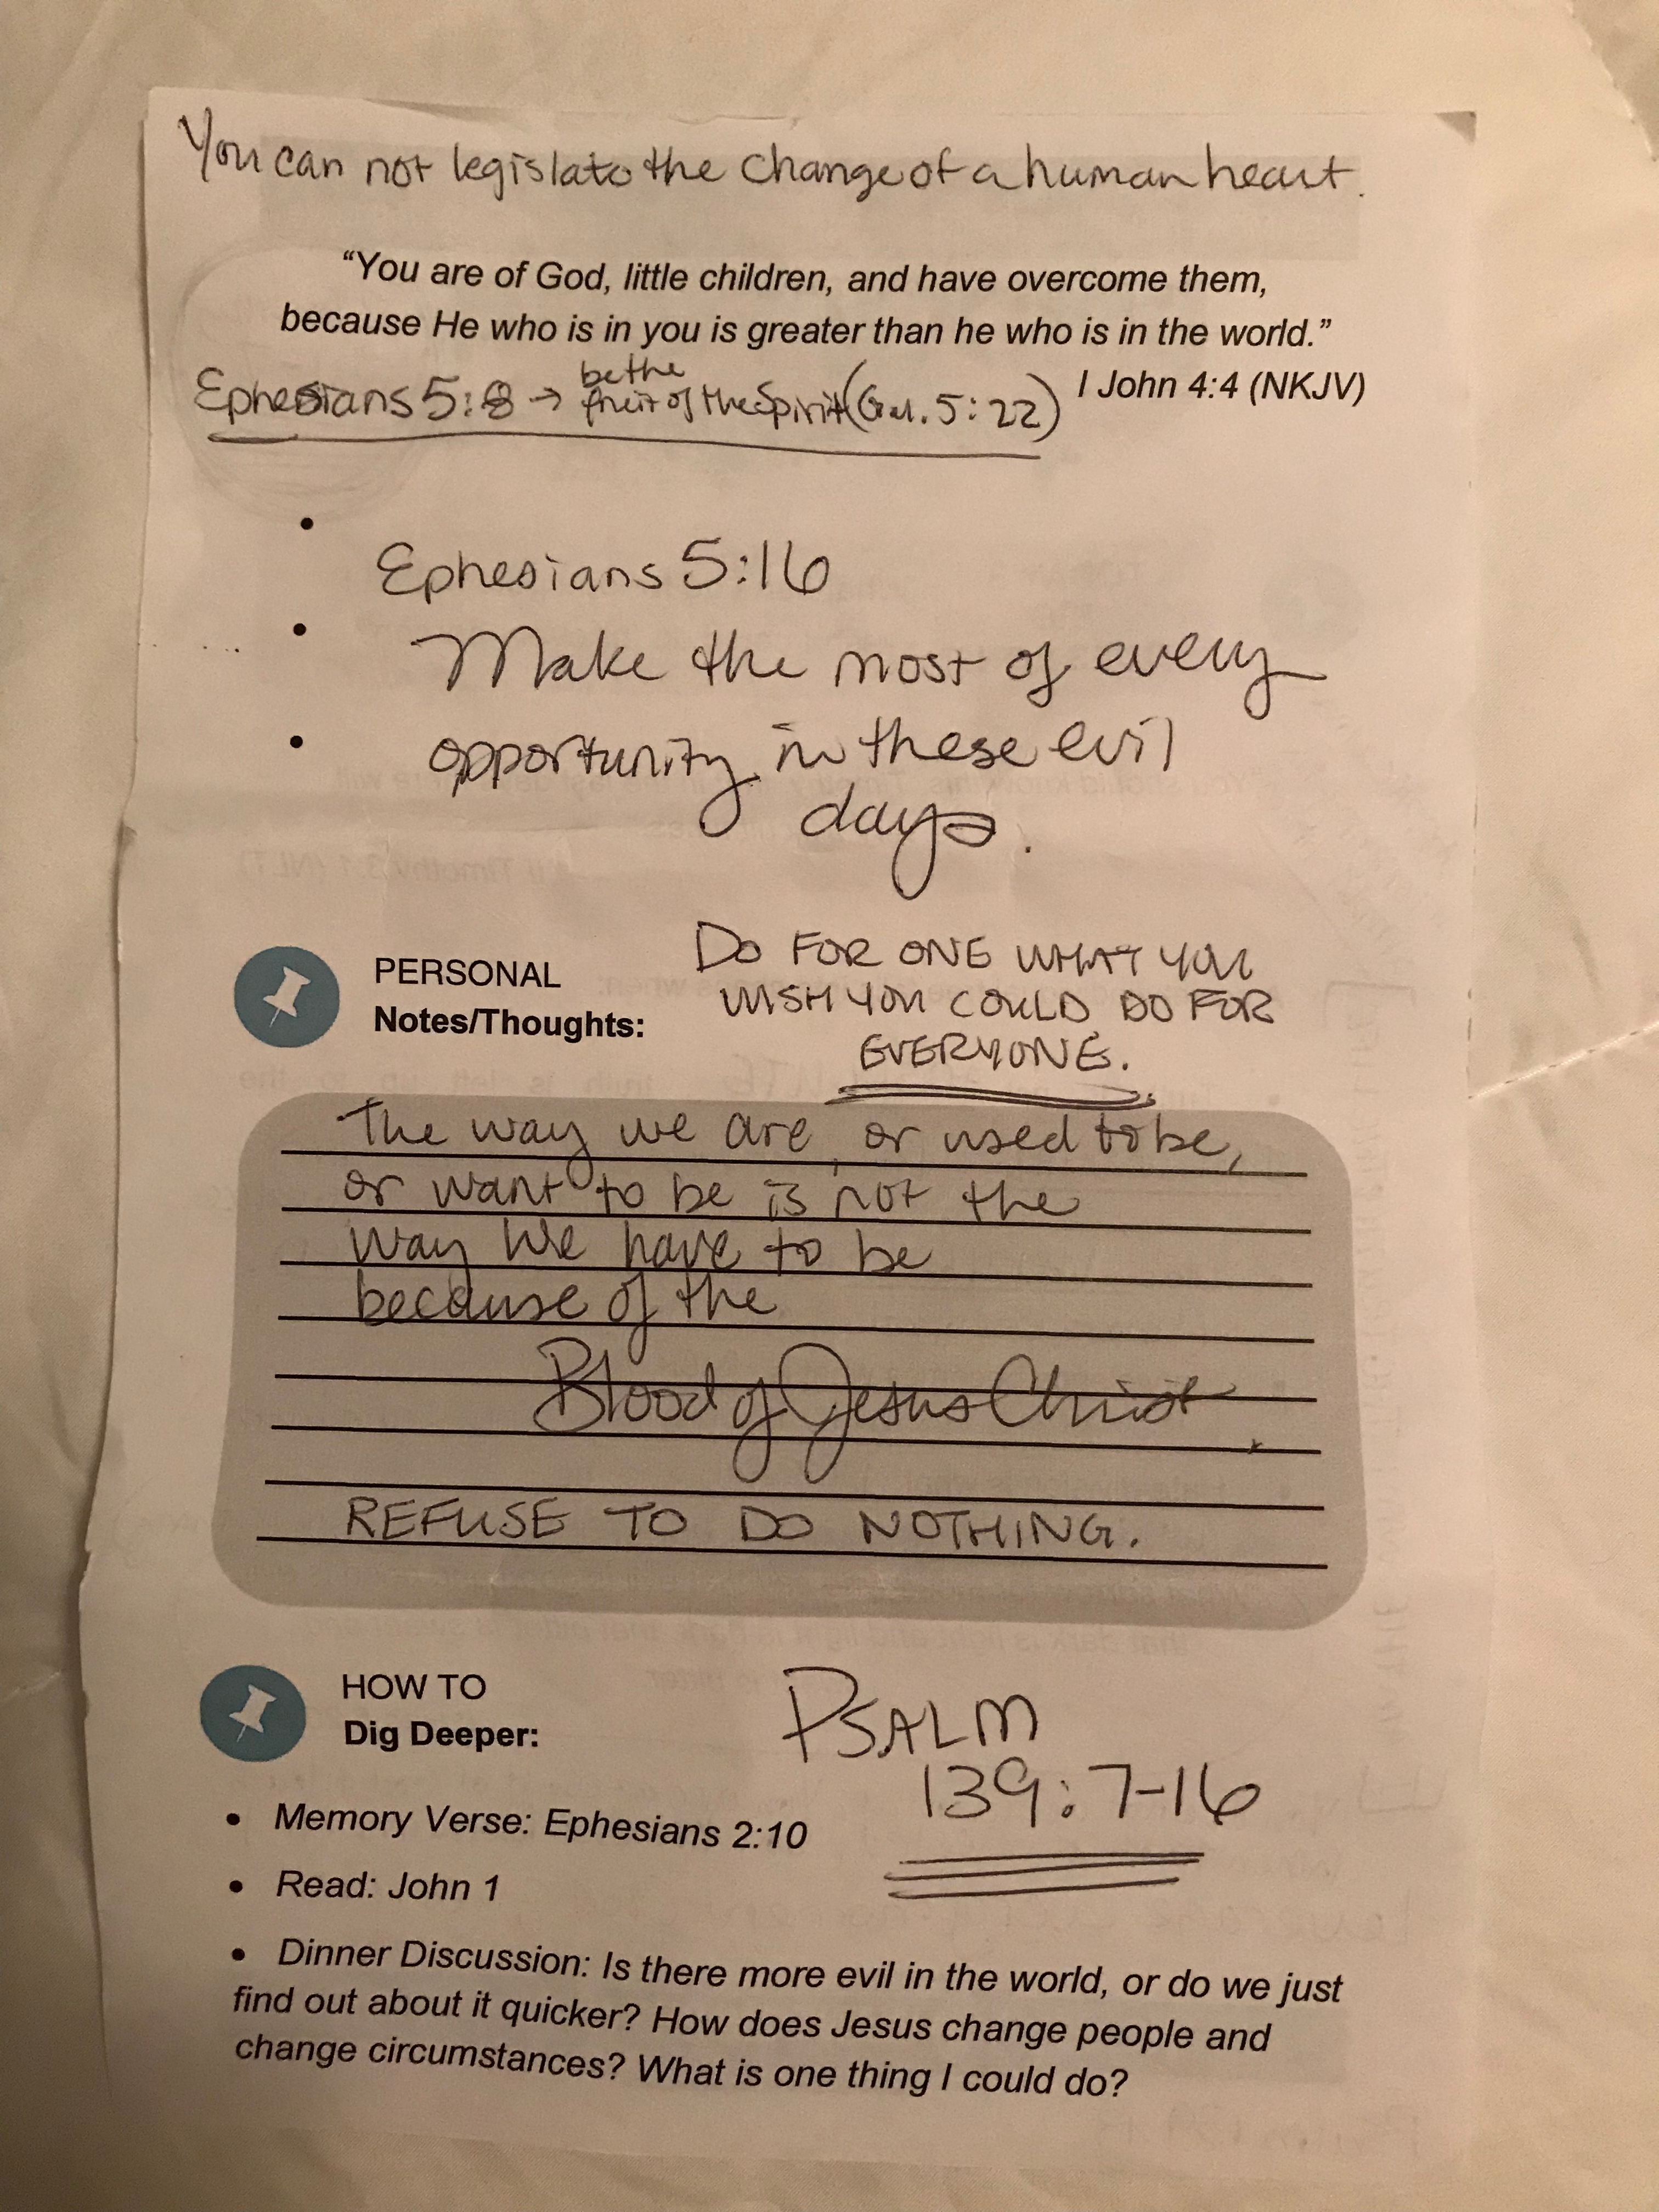 You can not legislate the change of a human heart.
“You are of God, little children, and have overcome them,
because He who is in you is greater than he who is in the world.”
I John 4:4 (NKJV)
Ephesians 5:8 → be the fruit of the Spirit (Gal. 5:22)
• Ephesians 5:16
• Make the most of every
• opportunity in these evil
days.
PERSONAL
Notes/Thoughts:
DO FOR ONE WHAT YOU
WISH YOU COULD DO FOR
EVERYONE.
The way we are, or used to be,
or want to be is not the
way we have to be
because of the
Blood of Jesus Christ.
REFUSE TO DO NOTHING.
HOW TO
Dig Deeper:
PSALM
139:7-16
• Memory Verse: Ephesians 2:10
• Read: John 1
• Dinner Discussion: Is there more evil in the world, or do we just
find out about it quicker? How does Jesus change people and
change circumstances? What is one thing I could do?